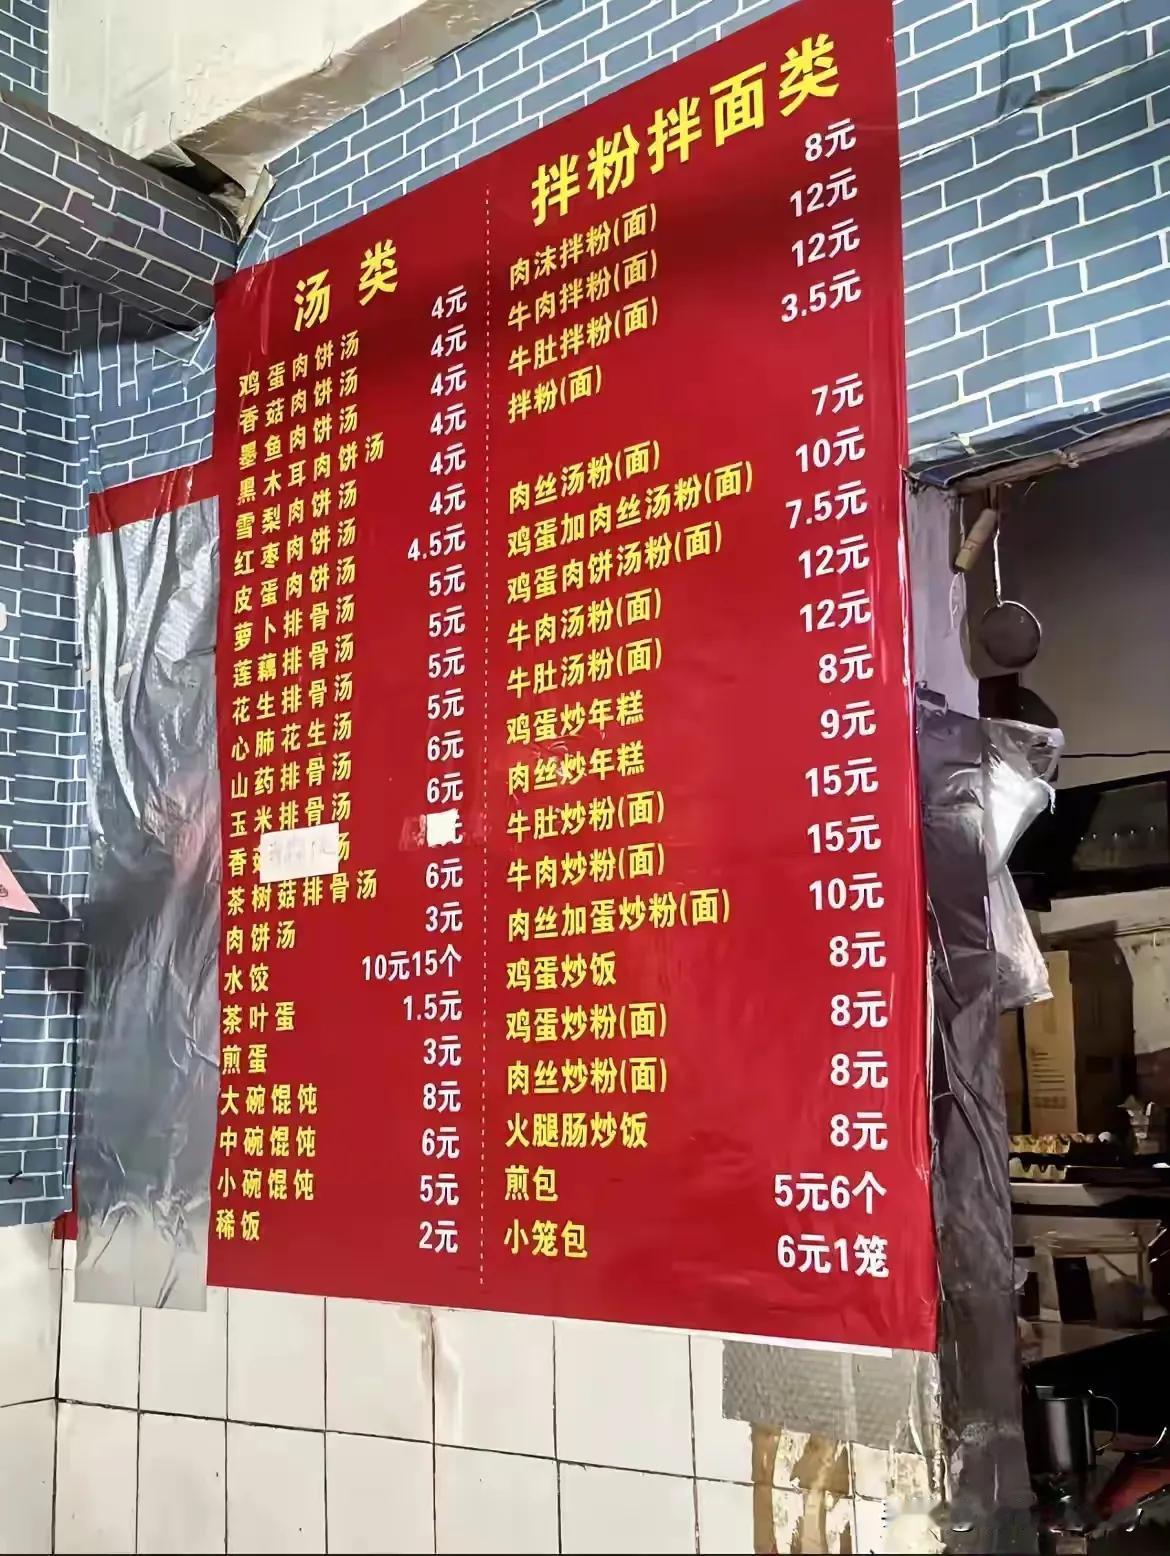 汤类
鸡蛋肉饼汤 4元
香菇肉饼汤 4元
墨鱼肉饼汤 4元
黑木耳肉饼汤 4元
雪梨肉饼汤 4元
红枣肉饼汤 4元
皮蛋肉饼汤 4.5元
萝卜排骨汤 5元
莲藕排骨汤 5元
花生排骨汤 5元
心肺花生汤 5元
山药排骨汤 6元
玉米排骨汤 6元
香 汤 元
茶树菇排骨汤 6元
肉饼汤 3元
水饺 10元15个
茶叶蛋 1.5元
煎蛋 3元
大碗馄饨 8元
中碗馄饨 6元
小碗馄饨 5元
稀饭 2元
拌粉拌面类
肉沫拌粉(面) 8元
牛肉拌粉(面) 12元
牛肚拌粉(面) 12元
拌粉(面) 3.5元
肉丝汤粉(面) 7元
鸡蛋加肉丝汤粉(面) 10元
鸡蛋肉饼汤粉(面) 7.5元
牛肉汤粉(面) 12元
牛肚汤粉(面) 12元
鸡蛋炒年糕 8元
肉丝炒年糕 9元
牛肚炒粉(面) 15元
牛肉炒粉(面) 15元
肉丝加蛋炒粉(面) 10元
鸡蛋炒饭 8元
鸡蛋炒粉(面) 8元
肉丝炒粉(面) 8元
火腿肠炒饭 8元
煎包 5元6个
小笼包 6元1笼